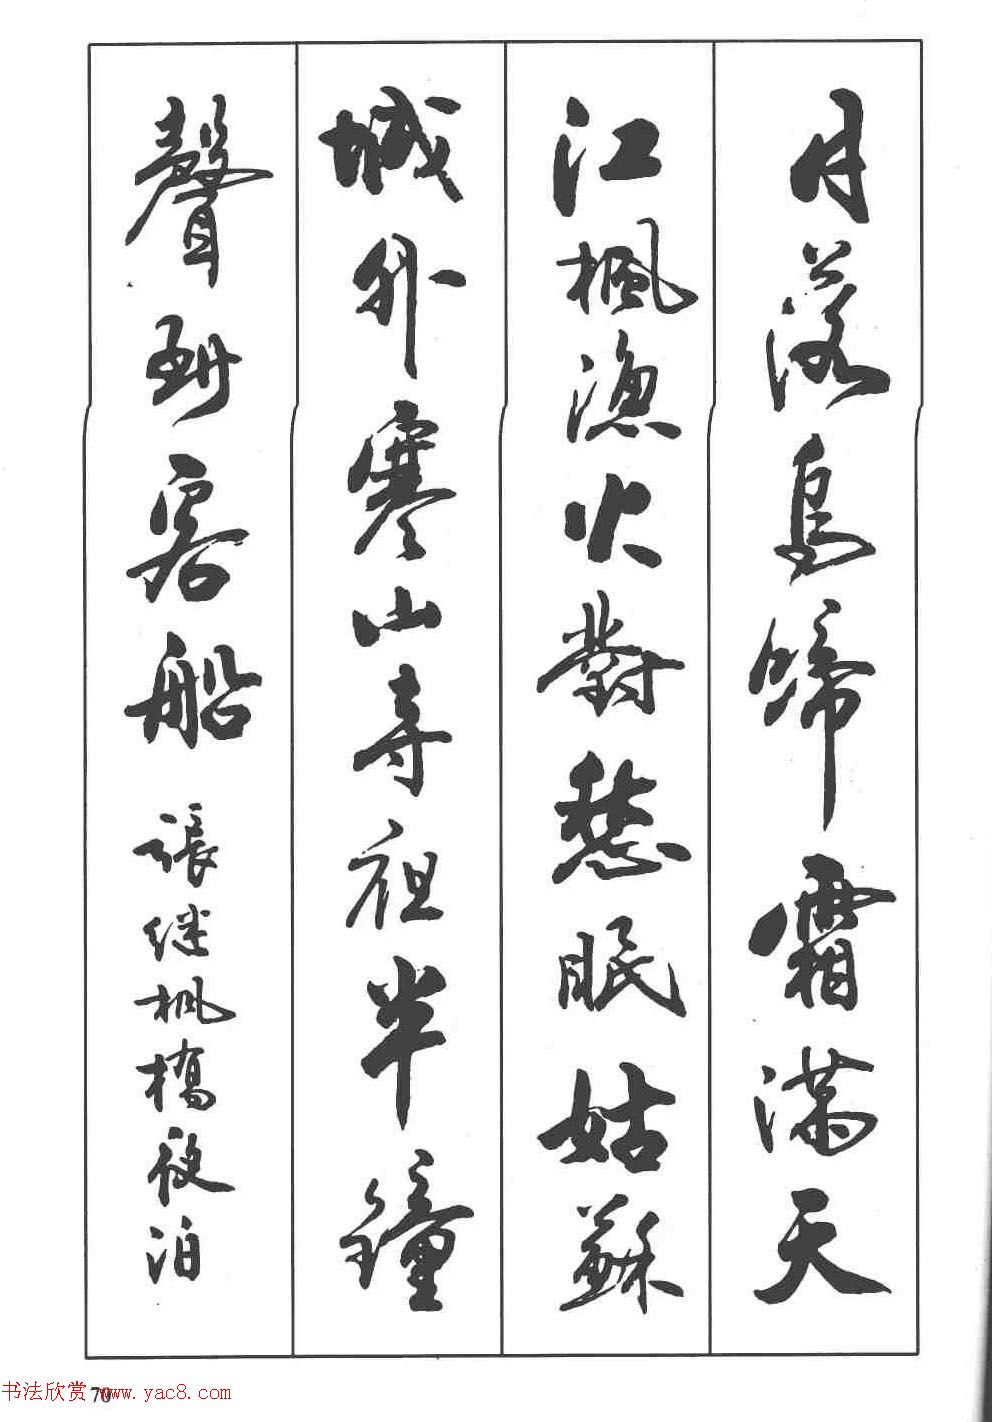 月落烏啼霜滿天
江楓漁火對愁眠姑蘇
城外寒山寺祖半鐘
聲到客船 張继楓橋夜泊
70
书法欣赏 www.yac8.com